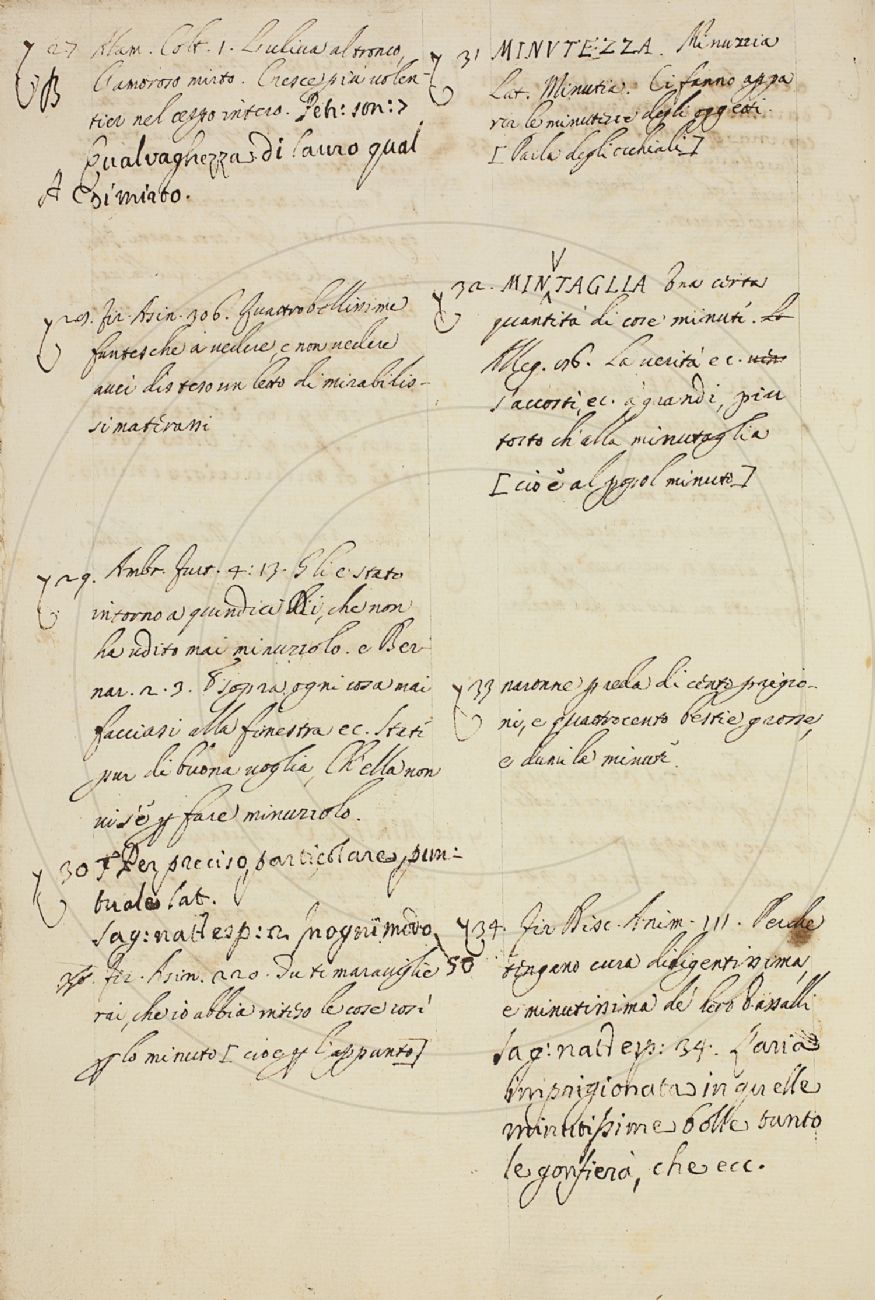 27 Alam. Colt. 1. L'uliva al tronco,
B L'amoroso mirto. Cresce più volen-
tier nel ceppo intero. Petr: son: 7
Qual vaghezza di lauro qual
A di mirto.
28. Fir. Asin. 306. Quattro bellissime
fantesche a vedere, e non vedere
avei disteso un letto di mirabilis-
simaterassi
29. Ambr. Furt. 4: 13. Gli è stato
intorno a quindici dì, che non
ha udito mai minuzzolo. e Ber-
nar. 2. 3. E sopra ogni cosa mai
facciasi alla finestra ec. Stati
pur di buona voglia, Ch'ella non
vi s'è p fare minuzzolo.
30 Per preciso, particolare, pun-
tuale Lat.
Sag: nat: esp: 2. In ogni modo
50
Fir. Asin. 220. Tu ti maraviglie
rai, che io abbia inteso le cose così
p lo minuto [cioe p l'appunto]
31 MINVTEZZA. Minuzzia
Lat. Minutia. Ci fanno appa
rir le minutezze degli oggetti.
[Parla degli occhiali]
32. MINVTAGLIA Una certa
quantità di cose minuti.
Alleg. 176. La verità ec.
s'accosti, ec. a' grandi, piu
tosto ch'alla minutaglia
[cioè al popol minuto]
33 naronne preda di cento prigio-
ni, e quattrocento bestie grosse,
e dumila minuti.
34. Fir Disc. Anim. 111. Perche
tengano cura diligentissima,
e minutissima de' loro vassalli
Sag: nat: esp: 34. L'aria
imprigionata in quelle
minutissime bolle tanto
le gonfierà, che ecc.